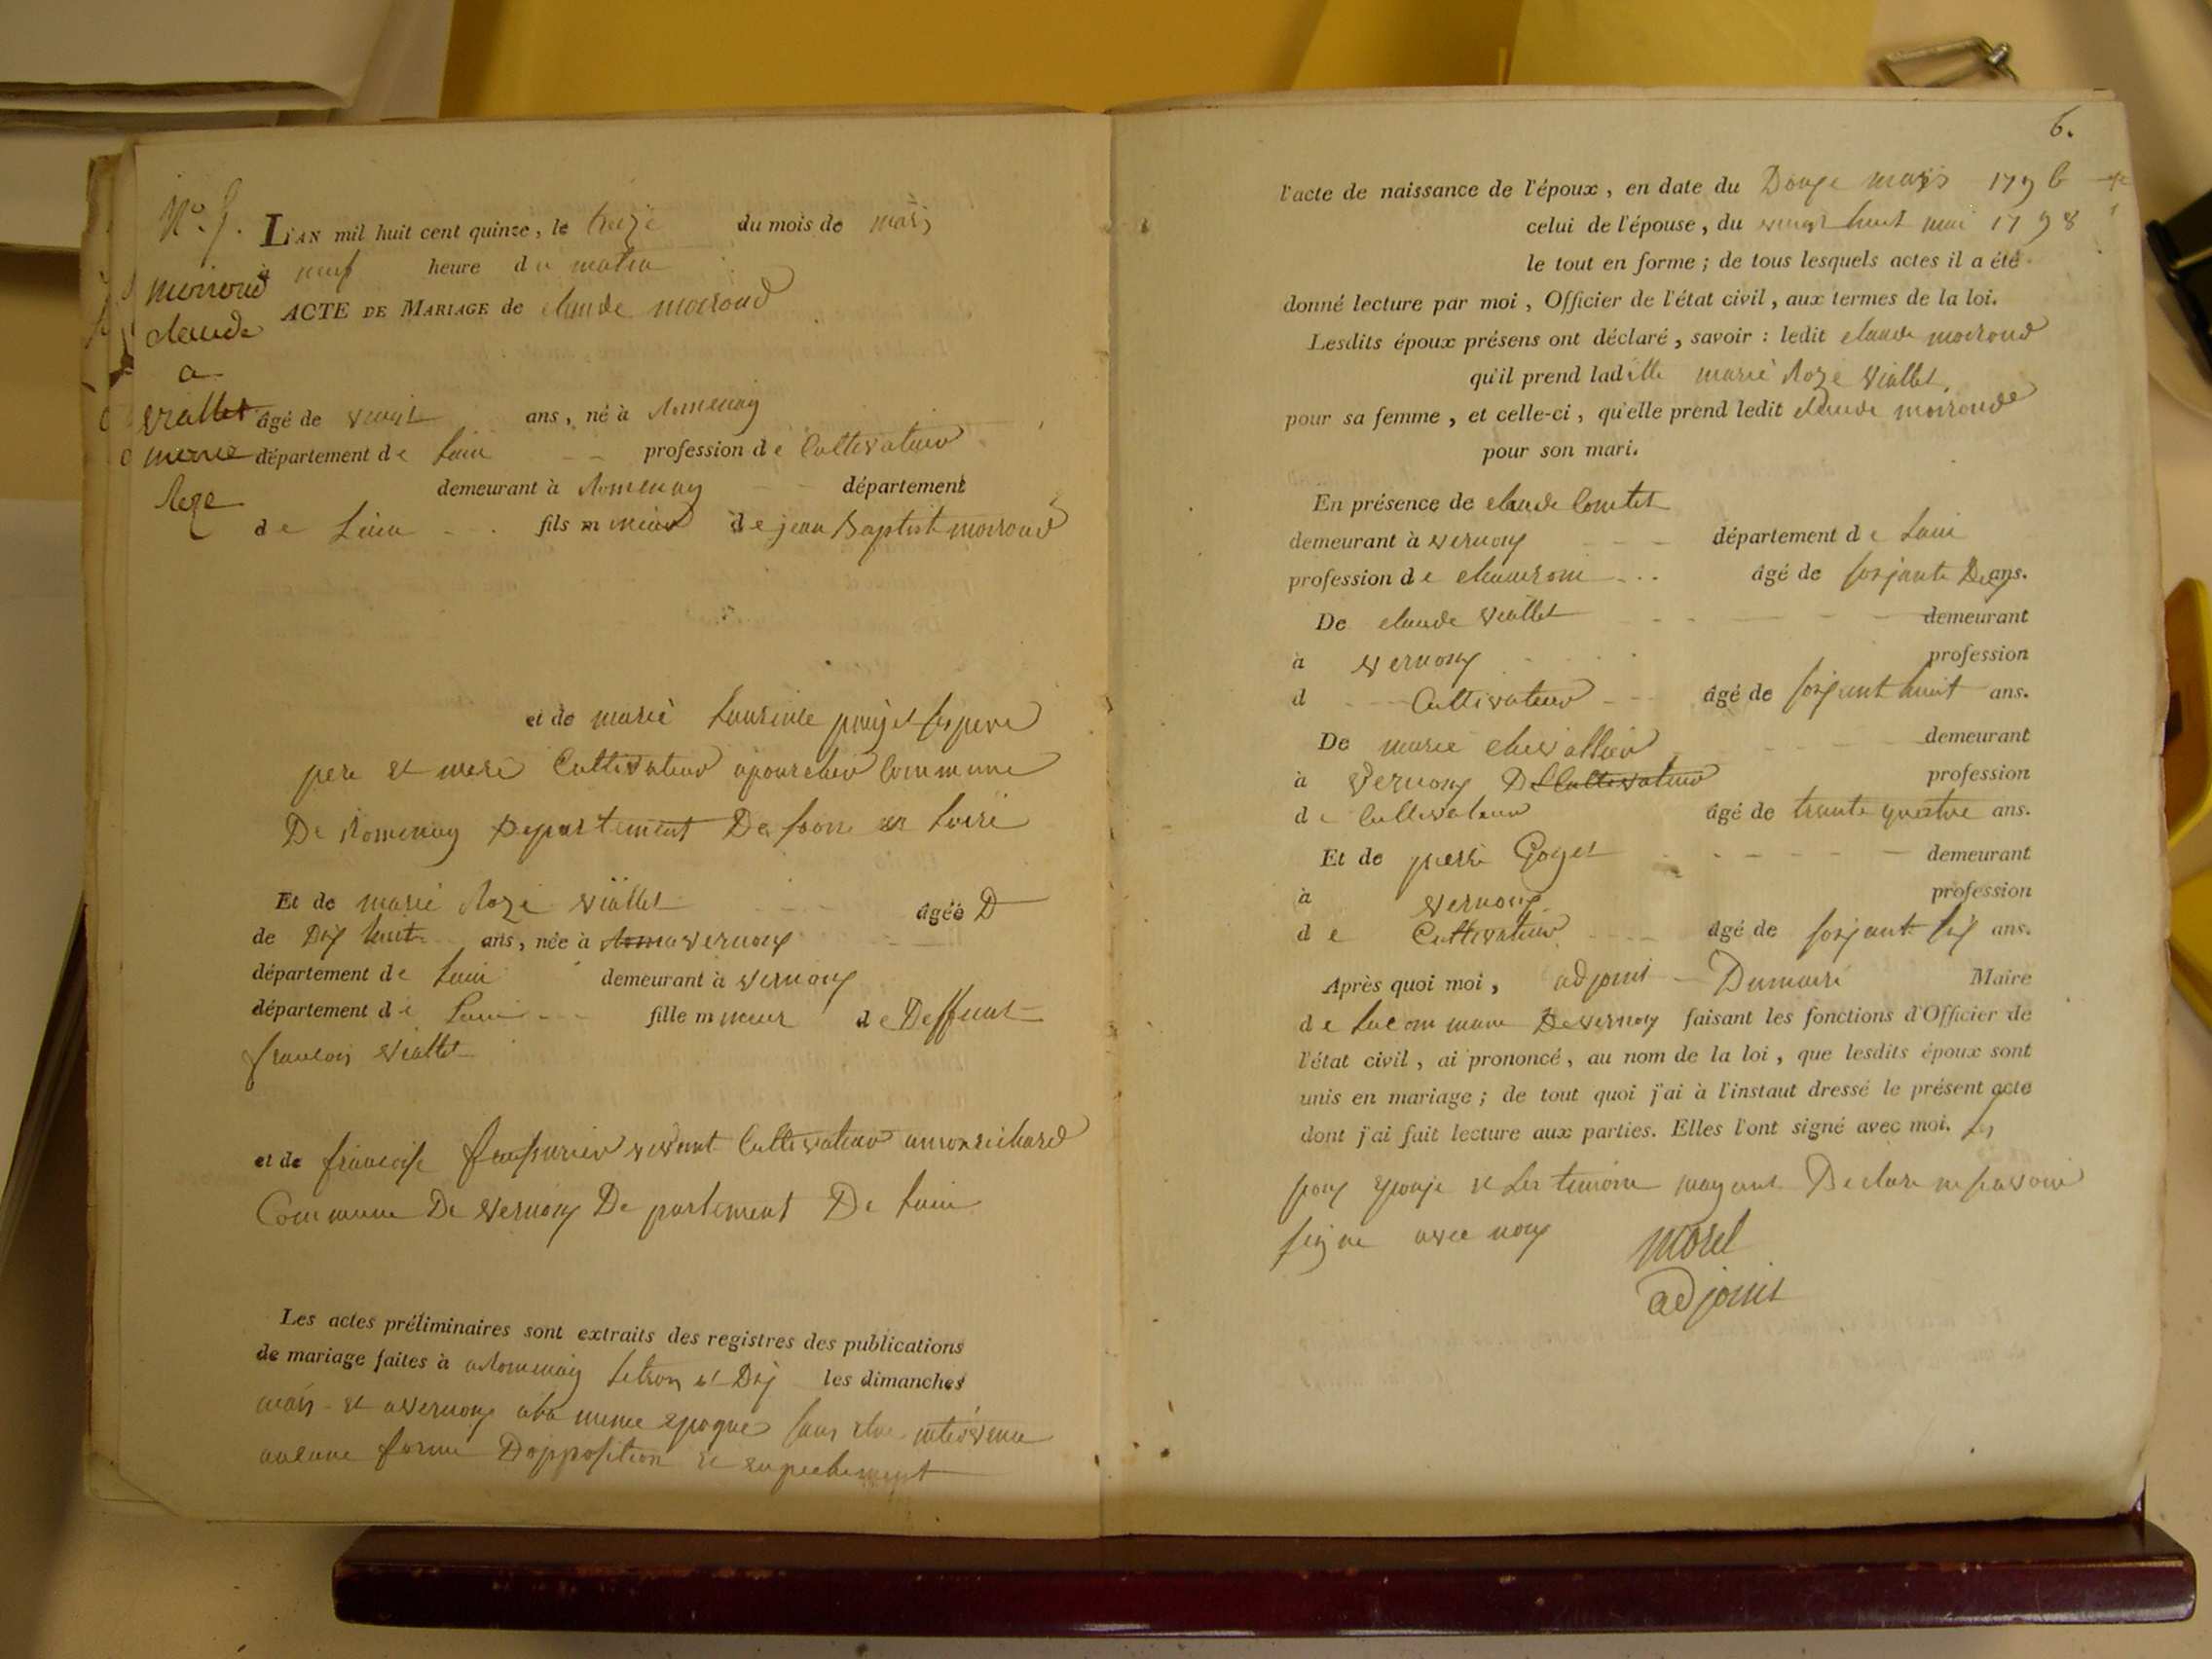 L'AN mil huit cent quinze, le treize du mois de mars
à neuf heure du matin
ACTE DE MARIAGE de claude moiroud
moiroud
claude
a
viallet
marie
Roze
âgé de vingt ans, né à Romenay
département de Lain profession de Cultivateur
demeurant à Romenay département
de Lain fils mineur de jean Baptist moiroud
et de marie Laurince puget
pere et mere Cultivateur commune
De Romenay Departement De Saone et Loire
Et de marie Roze viallet âgéé D
de Dix huit ans, née à vernoux
département de Lain demeurant à vernoux
département de Lain fille mineur de Deffunt
francois viallet
et de francoise vivant Cultivateur amonrichard
Commune De vernoux Departement De Lain
Les actes préliminaires sont extraits des registres des publications
de mariage faites à aRomenay les dimanches
mars et avernoux ala meme epoque sans etre intervenu
aucune forme Dopposition et enpechement
6.
l'acte de naissance de l'époux, en date du Douze mars 1796
celui de l'épouse, du vingt huit mai 1798
le tout en forme; de tous lesquels actes il a été
donné lecture par moi, Officier de l'état civil, aux termes de la loi.
Lesdits époux présens ont déclaré, savoir : ledit claude moiroud
qu'il prend ladille marie Roze viallet
pour sa femme, et celle-ci, qu'elle prend ledit claude moiroude
pour son mari.
En présence de claude Comtet
demeurant à vernoux département de Lain
profession de âgé de soxjante Dix ans.
De claude viallet demeurant
à vernoux profession
d Cultivateur âgé de soxjant huit ans.
De marie chevallier demeurant
à vernoux De Cultivateur profession
de Cultivateur âgé de trante quatre ans.
Et de pierre Goyet demeurant
à vernoux profession
de Cultivateur âgé de soxjant six ans.
Après quoi moi, adjoint Dumaire Maire
de La commune De vernoux faisant les fonctions d'Officier de
l'état civil, ai prononcé, au nom de la loi, que lesdits époux sont
unis en mariage; de tout quoi j'ai à l'instaut dressé le présent acte
dont j'ai fait lecture aux parties. Elles l'ont signé avec moi. Les
et Les temoins Declare ne savoir
signe avec nous
morel
adjoint